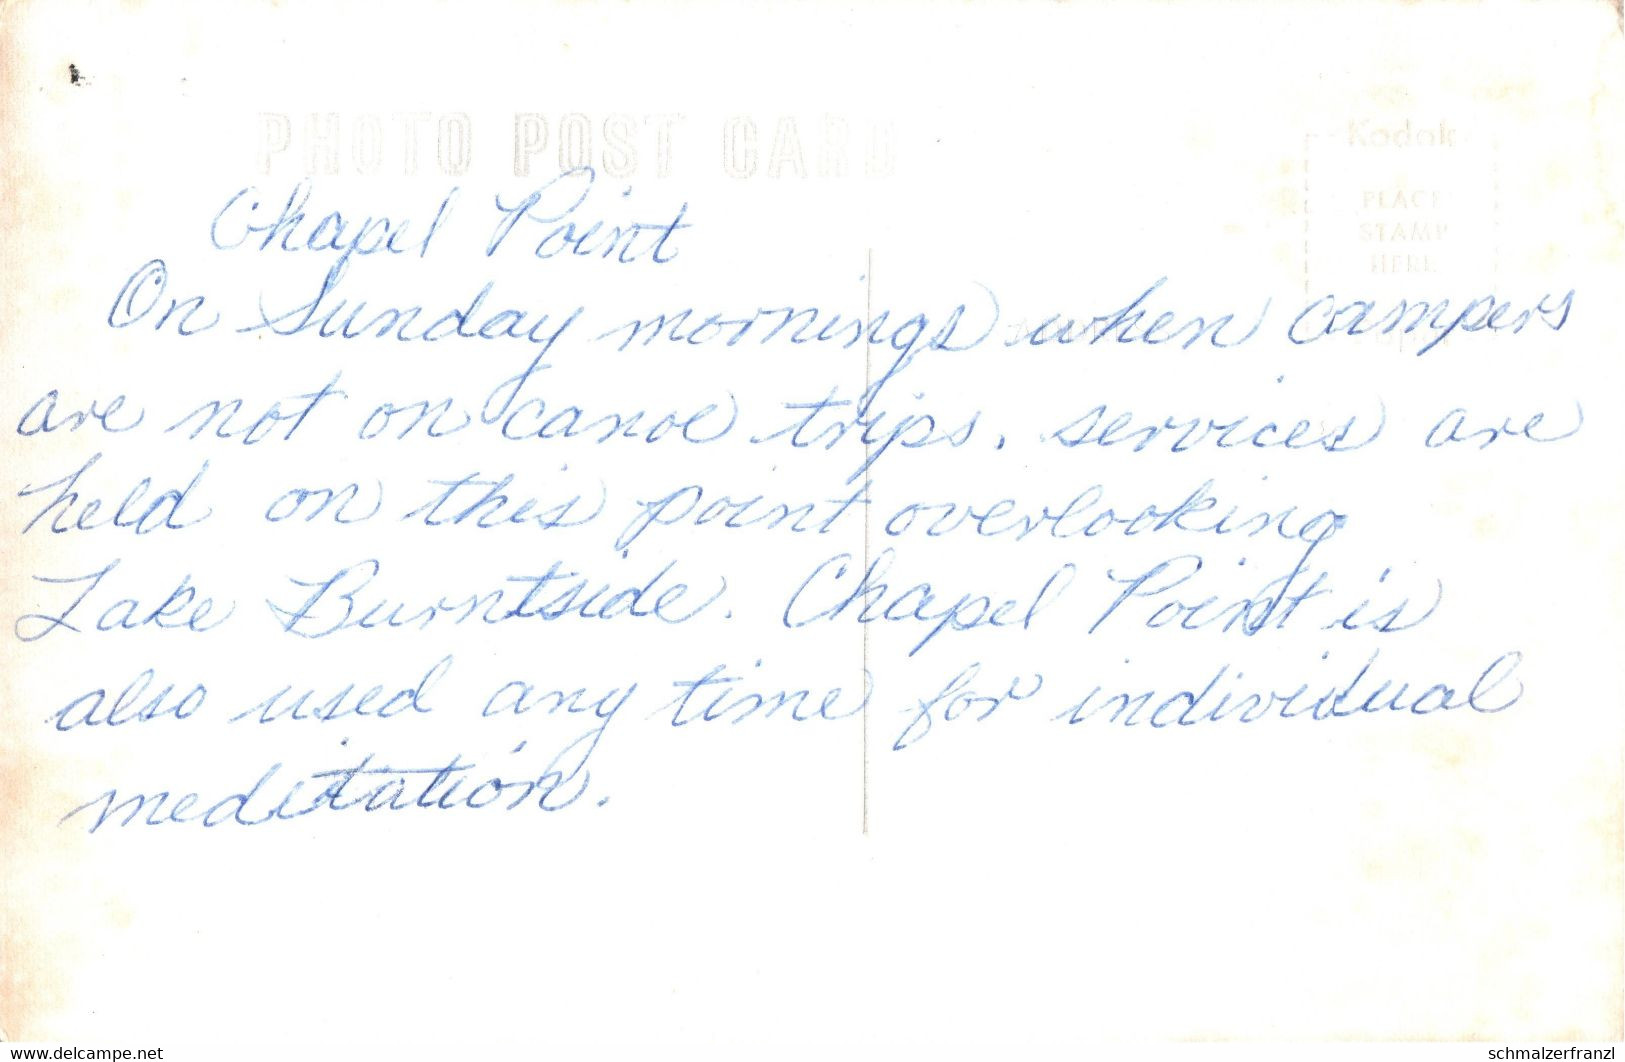 PHOTO POST CARD
Kodak
PLACE
STAMP
HERE
Chapel Point
On Sunday mornings when campers
are not on canoe trips, services are
held on this point overlooking
Lake Burntside. Chapel Point is
also used any time for individual
meditation.
www.delcampe.net
schmalzerfranzl